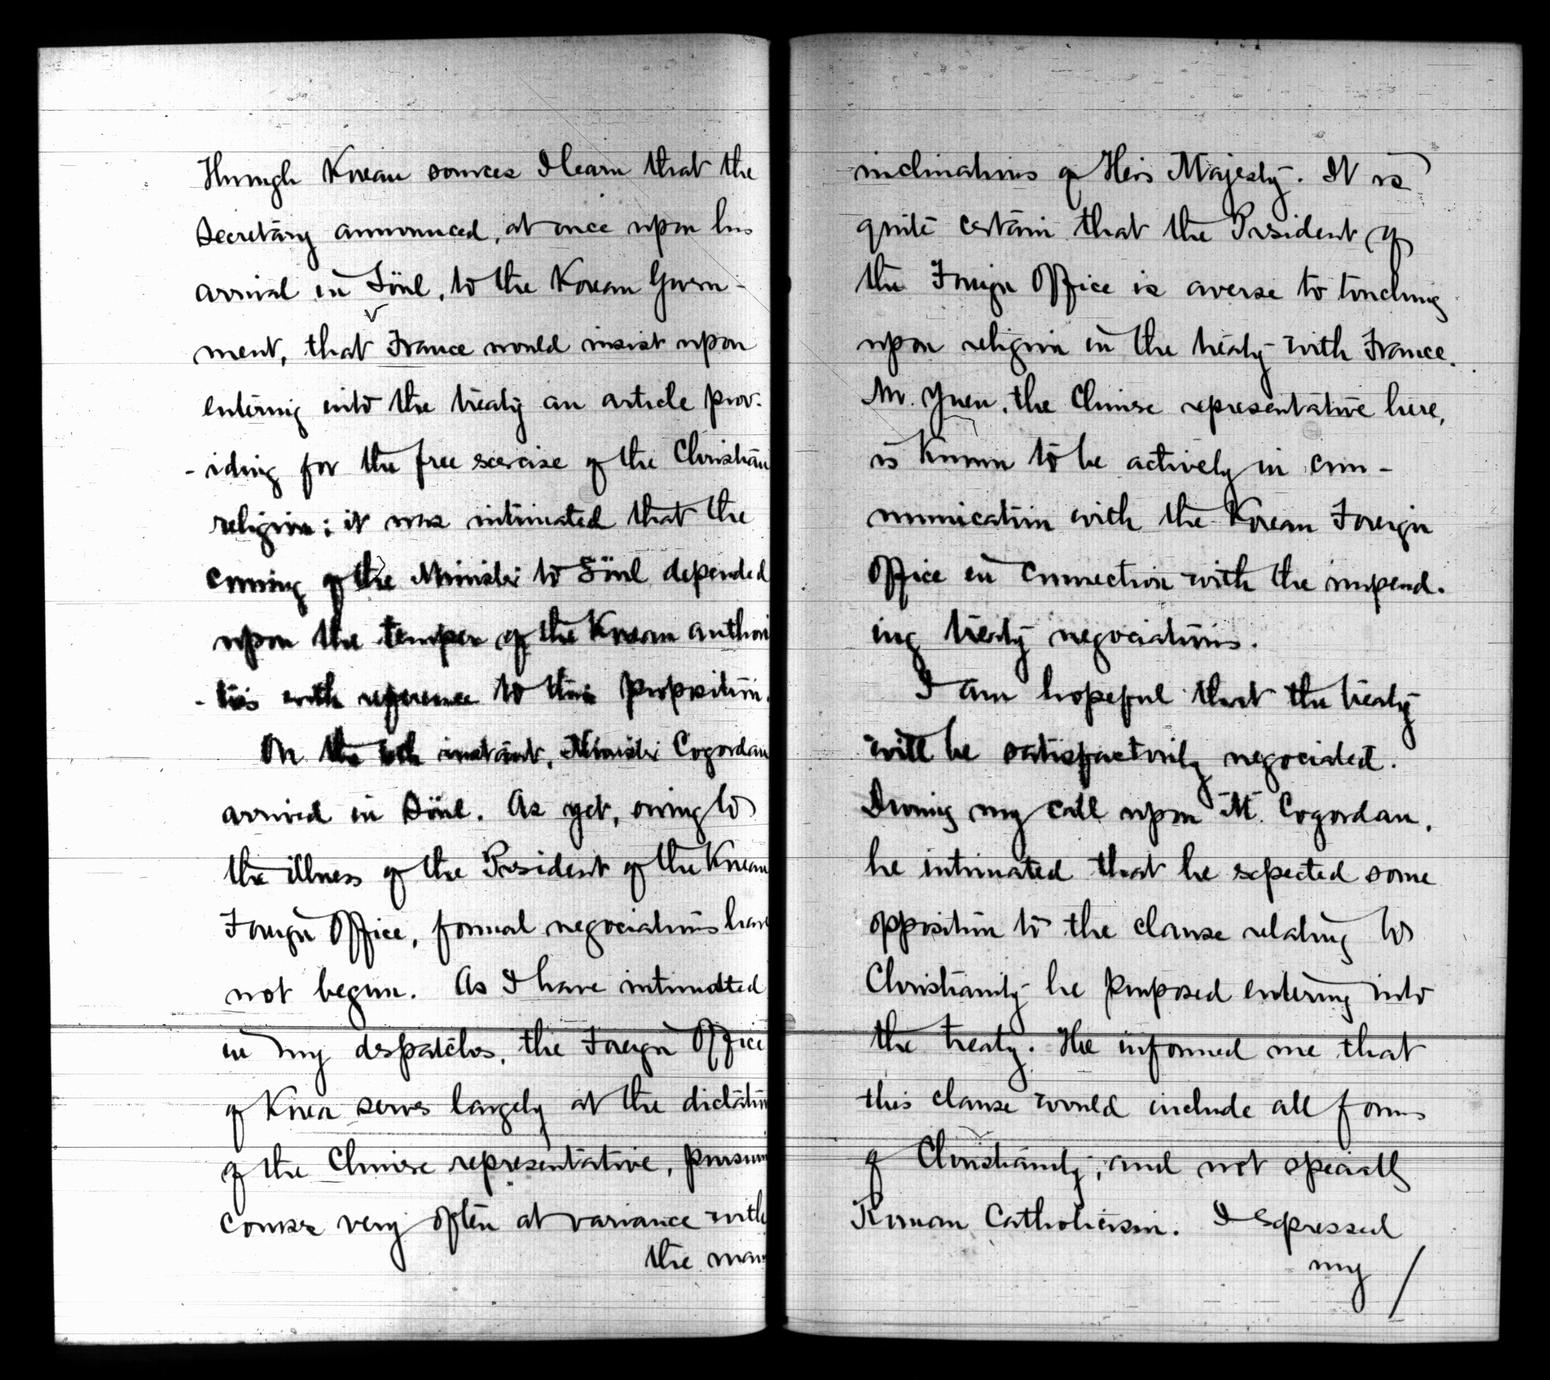 Through Korean sources I learn that the
Secretary announced, at once upon his
arrival in Söul, to the Korean Govern-
ment, that France would insist upon
entering into the treaty an article prov-
-iding for the free exercise of the Christian
religion; it was intimated that the
coming of the Minister to Söul depended
upon the temper of the Korean authori
-ties with reference to this proposition.
On the instant, Minister Cogordan
arrived in Söul. As yet, owing to
the illness of the President of the Korean
Foreign Office, formal negociations have
not begun. As I have intimated
in my despatches, the Foreign Office
of Korea serves largely at the dictation
of the Chinese representative, pursuing
course very often at variance with
the
inclinations of His Majesty. It is
quite certain that the President of
the Foreign Office is averse to touching
upon religion in the treaty with France.
Mr. Yuen, the Chinese representative here,
is known to be actively in com-
munication with the Korean Foreign
Office in connection with the impend-
ing treaty negociations.
I am hopeful that the treaty
will be satisfactorily negociated.
During my call upon M. Cogordan,
he intimated that he expected some
opposition to the clause relating to
Christianity he proposed entering into
the treaty. He informed me that
this clause would include all forms
of Christianity, and not specially
Roman Catholicism. I expressed
my